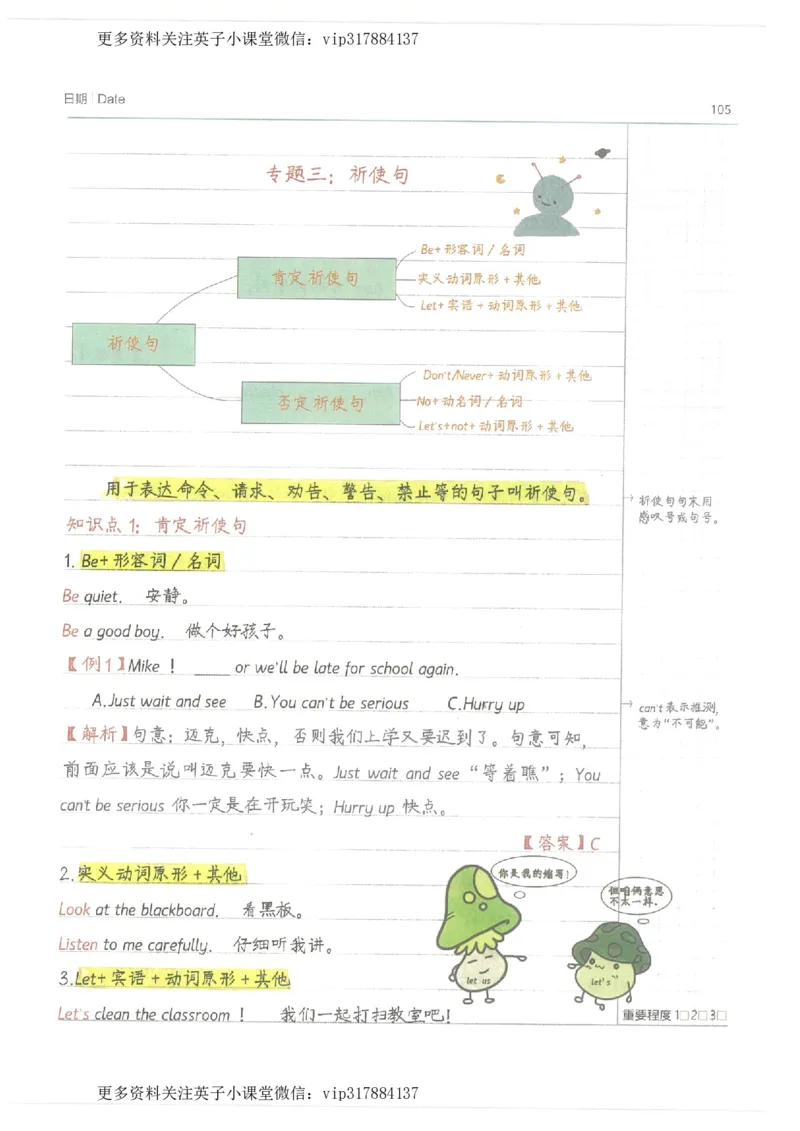 更多资料关注英子小课堂微信：vip317884137
日期 Date
105
专题三：祈使句
Be+形容词/名词
肯定祈使句
实义动词原形+其他
Let+宾语+动词原形+其他
祈使句
Don't/Never+动词原形+其他
否定祈使句
No+动名词/名词
Let's+not+动词原形+其他
用于表达命令、请求、劝告、警告、禁止等的句子叫祈使句。
祈使句句末用
感叹号或句号。
知识点1：肯定祈使句
1. Be+形容词/名词
Be quiet. 安静。
Be a good boy. 做个好孩子。
【例1】Mike！ _____ or we'll be late for school again.
A.Just wait and see B.You can't be serious C.Hurry up
can't表示推测，
意为“不可能”。
【解析】句意：迈克，快点，否则我们上学又要迟到了。句意可知，
前面应该是说叫迈克要快一点。Just wait and see “等着瞧”；You
can't be serious 你一定是在开玩笑；Hurry up 快点。
【答案】C
2.实义动词原形+其他
你是我的缩写！
但咱俩意思
不太一样.
Look at the blackboard. 看黑板。
Listen to me carefully. 仔细听我讲。
let us
let's
3.Let+宾语+动词原形+其他
Let's clean the classroom！ 我们一起打扫教室吧！
重要程度 1□2□3□
更多资料关注英子小课堂微信：vip317884137